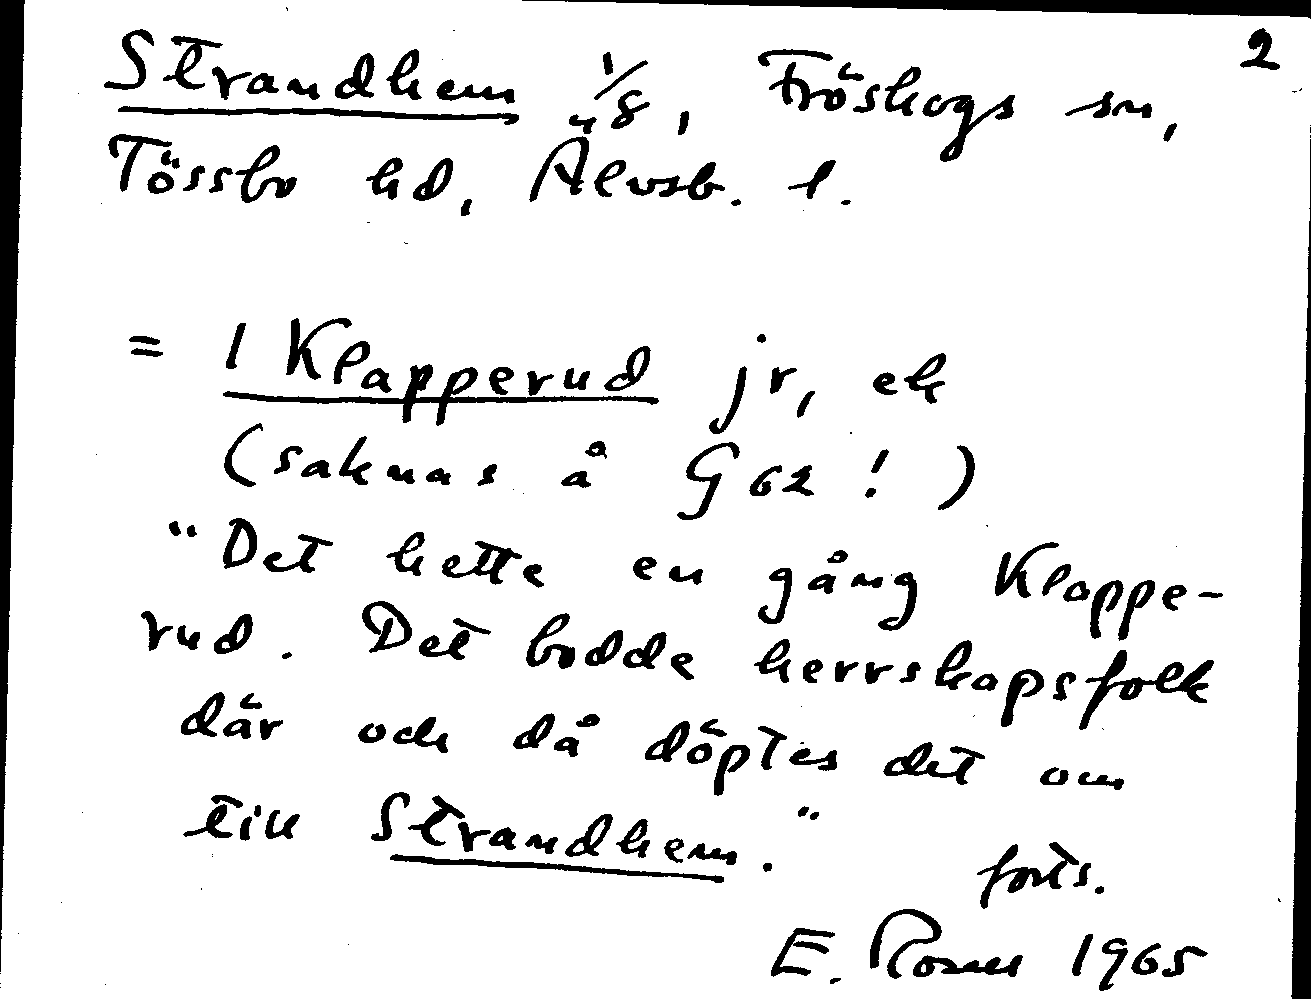 2
Strandhem 1/8, Fröskogs sn,
Tössbo hd, Älvsb. l.
= 1 Klapperud jr, ek
(saknas å G 62!)
"Det hette en gång Klappe-
rud. Det bodde herrskapsfolk
där och då döptes det om
till Strandhem."
forts.
E. 1965